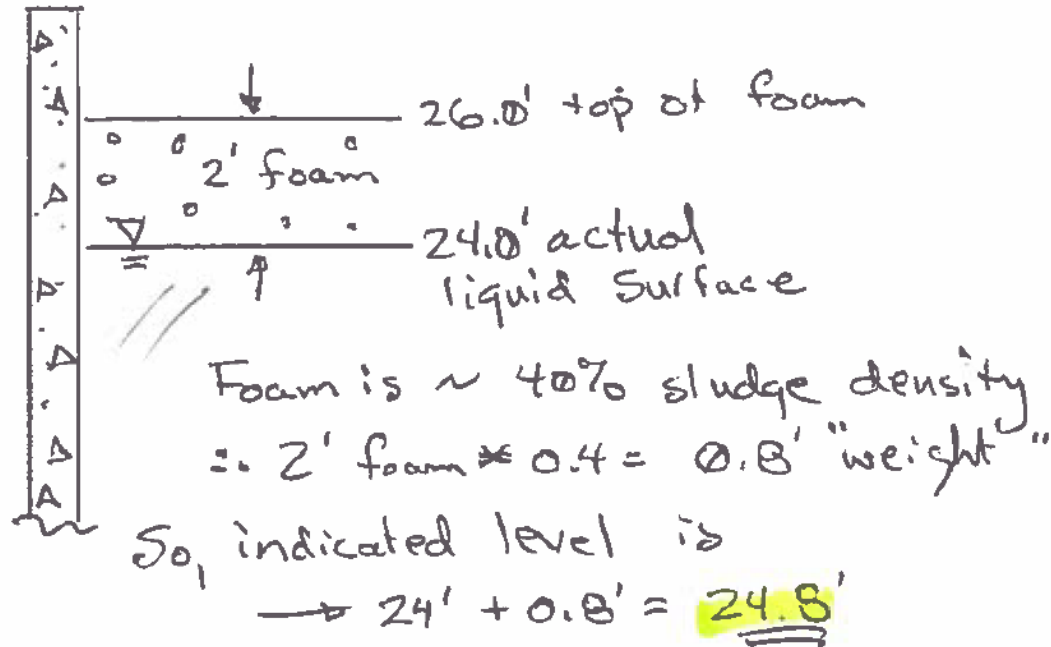 26.0' top of foam
2' foam
24.0' actual
liquid Surface
Foam is ~ 40% sludge density
∴ 2' foam * 0.4 = 0.8' "weight"
So, indicated level is
→ 24' + 0.8' = 24.8'